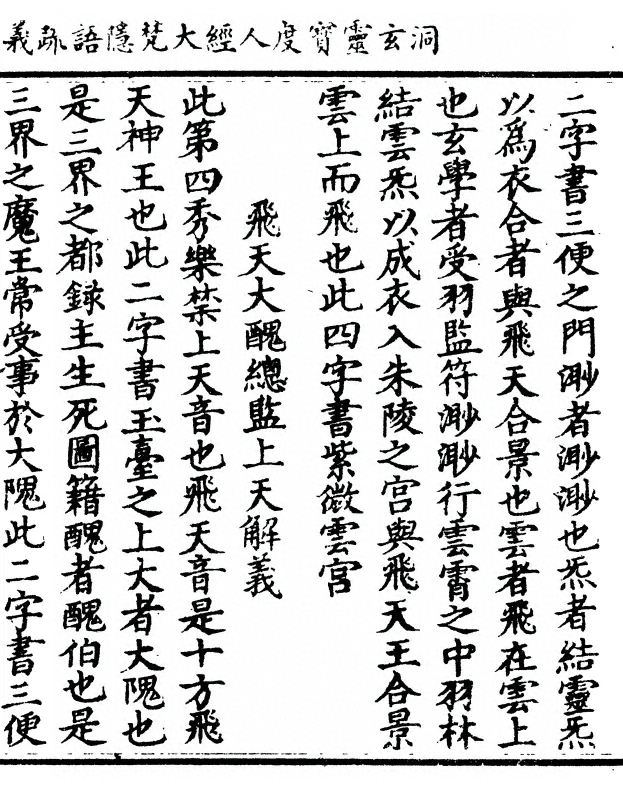 洞玄靈寶度人經大梵隱語疏義
二字書三便之門渺者渺渺也炁者結靈炁
以爲衣合者與飛天合景也雲者飛在雲上
也玄學者受羽監符渺渺行雲霄之中羽林
結雲炁以成衣入朱陵之宮與飛天王合景
雲上而飛也此四字書紫微雲宮
飛天大醜總監上天解義
此第四秀樂禁上天音也飛天音是十方飛
天神王也此二字書玉臺之上大者大隗也
是三界之都録主生死圖籍醜者醜伯也是
三界之魔王常受事於大隗此二字書三便